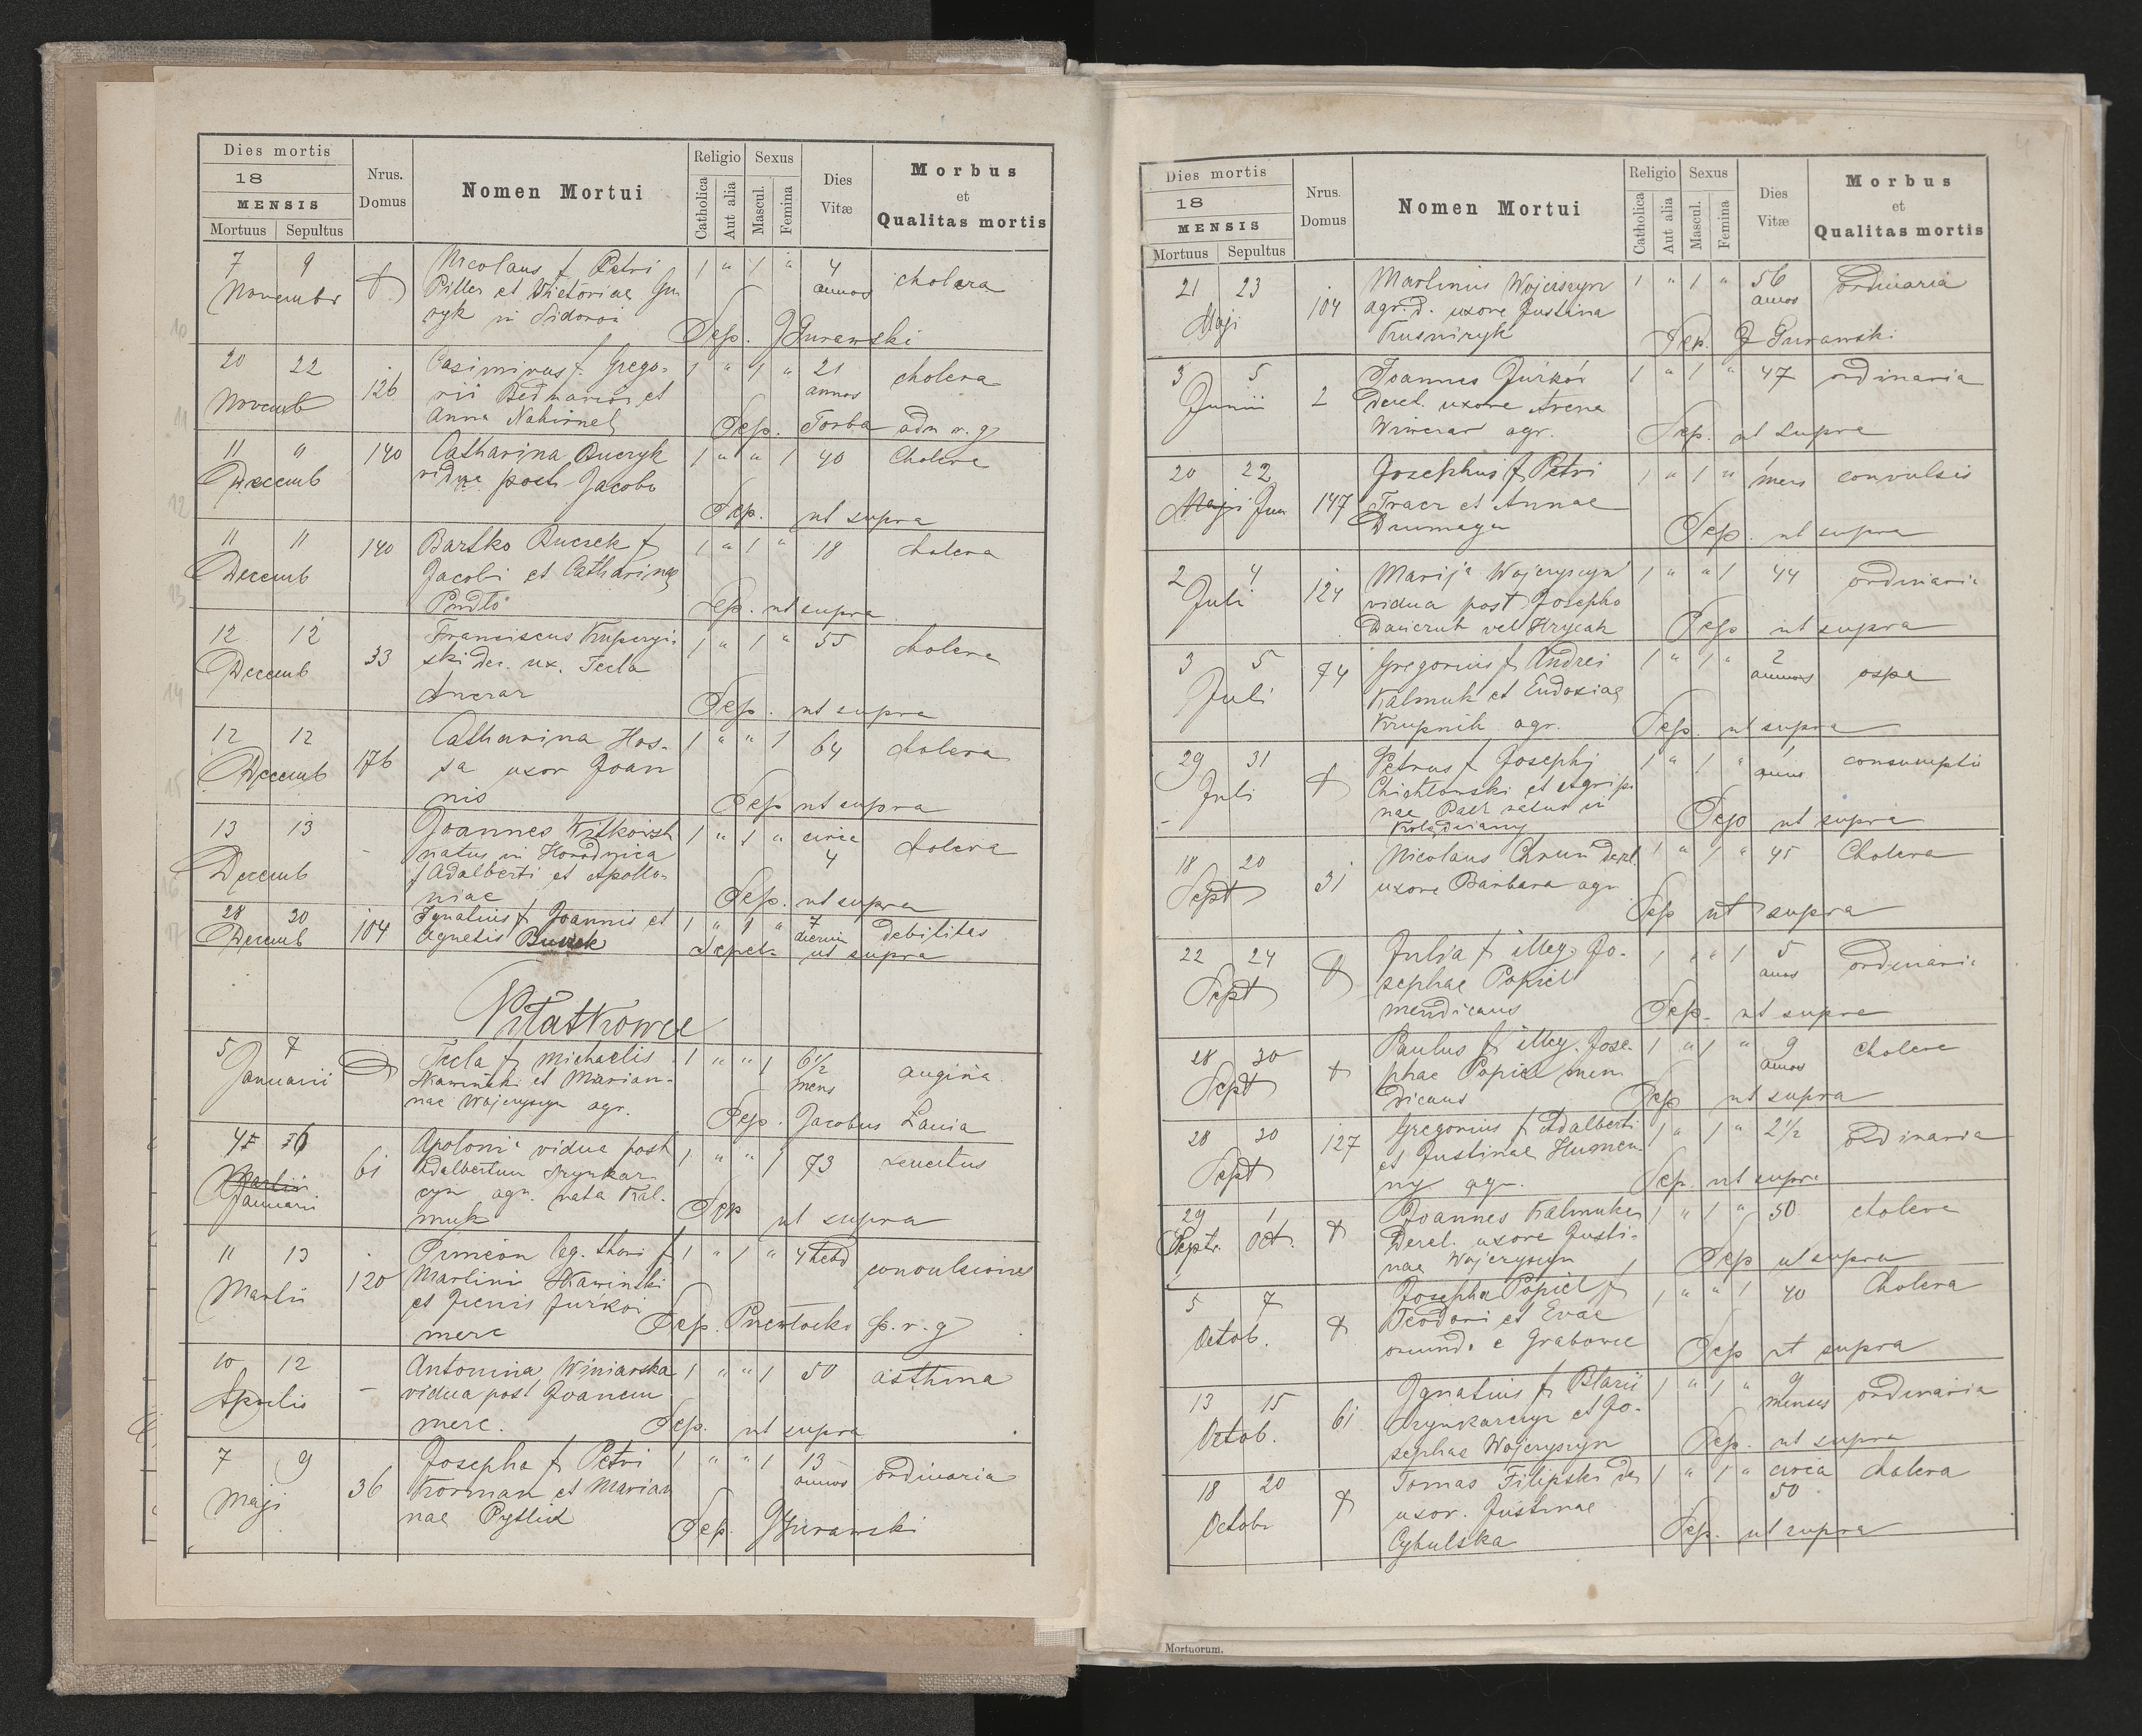 Dies mortis
18
MENSIS
Mortuus Sepultus
Nrus. Domus
Nomen Mortui
Religio
Catholica
Aut alia
Sexus
Mascul.
Femina
Dies Vitæ
Morbus
et
Qualitas mortis
7 9 Nicolaus f Petri 1 " 1 " 4 cholera
Novembr Piller et Wictoriae annos
in Sidorów
Sep. J Gurawski
20 22 126 Casimirus f. Grego- 1 " 1 " 21 cholera
Novemb rii Bednarz et annos
Anna Nahirnel Sep. Torba adm r. g
11 " 140 Catharina Buczyk 1 " " 1 40 Cholera
Decemb vidua post Jacobo
Sep. ut supra
11 11 140 Bartko Buczek f 1 " 1 " 18 cholera
Decemb Jacobi et Catharinae
Pudło Sep. ut supra
12 12 33 Franciscus 1 " 1 " 55 cholera
Decemb ski der. ux. Tecla
Sep. ut supra
12 12 176 Catharina Hos- 1 " " 1 64 cholera
Decemb sa uxor Joan
nis Sep ut supra
13 13 - Joannes 1 " 1 " circa cholera
Decemb natus in Horodnica 4
f Adalberti et Apollo-
niae Sep. ut supra
28 30 104 Ignatius f Joannis et 1 " 1 " 7 debilitas
Decemb Agnetis Buczek dierum
Sepel. ut supra
Piłatkowce
5 7 Tecla f Michaelis 1 " " 1 6 1/2 angina
Januarii Skawiński et Marian- mens
nae Wojcyszyn agr.
Sep. Jacobus Lania
61 Apoloni vidua post 1 " " 1 73 senectus
Martii Adalbertum
Januarii agr. nata Kal-
muk Sep ut supra
11 13 120 leg. thori f 1 " 1 " 4 hebd convulsiones
Martii Martini Skawinski
et Jurków
merc Sep. p. r. g
10 12 - Antonina Winiarska 1 " " 1 50 asthma
Aprilis vidua post Joanem
merc. Sep. ut supra
7 9 36 Josepha f Petri 1 " " 1 13 ordinaria
Maji Korman et Marian annos
nae Pytlik
Sep. J Gurawski
Dies mortis
18
MENSIS
Mortuus Sepultus
Nrus. Domus
Nomen Mortui
Religio
Catholica
Aut alia
Sexus
Mascul.
Femina
Dies Vitæ
Morbus
et
Qualitas mortis
21 23 104 Martinus Wojciszyn 1 " 1 " 56 ordinaria
Maji agr. d. uxore Justina annos
Kusniryk Sep. J Gurawski
3 5 2 Joannes Jurków 1 " 1 " 47 ordinaria
Junii Derel. uxore Arena
Winiczar agr. Sep. ut supra
20 22 147 Josephus f Petri 1 " 1 " 1 mens convulsis
Maji Jun Tracz et Annae
Sep. ut supra
2 4 124 Marija Wojcyszyn 1 " " 1 44 ordinaria
Juli vidua post Josepho
vel Hrycak Sep ut supra
3 5 74 Gregorius f Andrei 1 " 1 " 2 ospa
Juli Kalmuk et Eudoxiae annos
Krupnik agr. Sep. ut supra
29 31 Petrus f Josephi 1 " 1 " 1 consumptio
Juli Chichlowski et Agripi annus
nae natus in
Kolędziany Sep ut supra
18 20 31 Nicolaus derel. 1 " 1 " 45 Cholera
Sept uxore Barbara agr
Sep ut supra
22 24 Julia f illeg. Jo- 1 " " 1 5 ordinaria
Sept sephae Popiel annos
mendicans Sep. ut supra
28 30 Paulus f illeg. Jose- 1 " 1 " 9 cholera
Sept phae Popiel men annos
dicans Sep ut supra
28 30 127 Gregorius f Adalberti 1 " 1 " 2 1/2 ordinaria
Sept et Justinae Humen-
ny agr. Sep. ut supra
29 1 Joannes Kalmuk 1 " 1 " 50 cholera
Septr. Oct. Derel. uxore Justi-
nae Wojcyszyn Sep ut supra
5 7 Josepha Popiel f 1 " " 1 40 Cholera
Octob. Teodori et Evae
oriund. e Grabowce Sep ut supra
13 15 61 Ignatius f Blasii 1 " 1 " 9 ordinaria
Octob. et Jo- menses
sephae Wojcyszyn Sep. ut supra
18 20 Tomas Filipski de 1 " 1 " circa cholera
Octobr uxor. Justinae 50
Cybulska Sep. ut supra
Mortuorum.